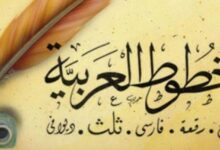 خطوط العربية
رقعة ٠ فارسي ٠ ثلث ٠ ديواني